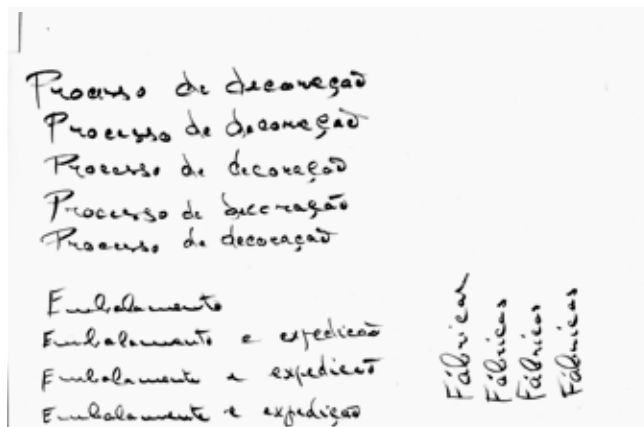 Processo de decoração
Processo de decoração
Processo de decoração
Processo de decoração
Processo de decoração
Embalamento
Embalamento e expedição
Embalamento e expedição
Embalamento e expedição
Fábricas
Fábricas
Fábricas
Fábricas